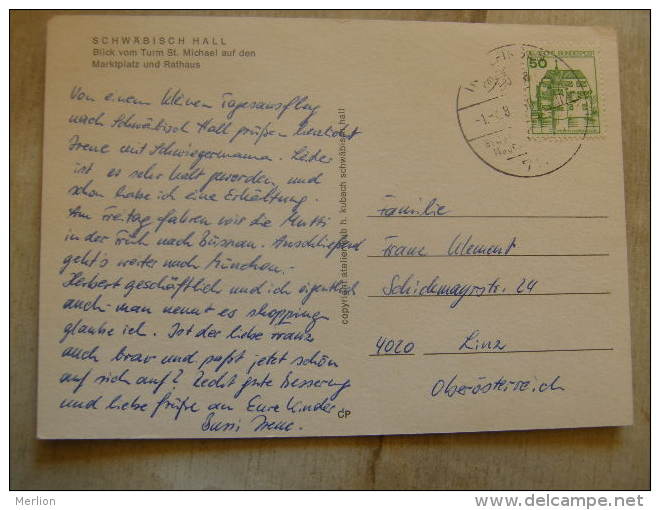 SCHWÄBISCH HALL
Blick vom Turm St. Michael auf den
Marktplatz und Rathaus
50
DEUTSCHE BUNDESPOST
Von einem kleinen Tagesausflug
nach Schwäbisch Hall grüßen herzlichst
Irene mit Schwiegermama. Leider
ist es sehr kalt geworden, und
schon habe ich eine Erkältung.
Am Freitag fahren wir die Mutti
in der Früh nach Anschließend
geht's weiter nach München.-
Herbert geschäftlich und ich eigentlich
auch - man nennt es shopping
glaube ich. Ist der liebe Franz
auch brav und paßt jetzt schön
auf sich auf? Recht gute Besserung
und liebe Grüße an Eure Kinder
Bussi Irene.
copyright atelier hub h. kubach schwäbisch hall
CP
Familie
Franz Klement
Schickmayrstr. 24
4020 Linz
Oberösterreich
Merlion
www.delcampe.net